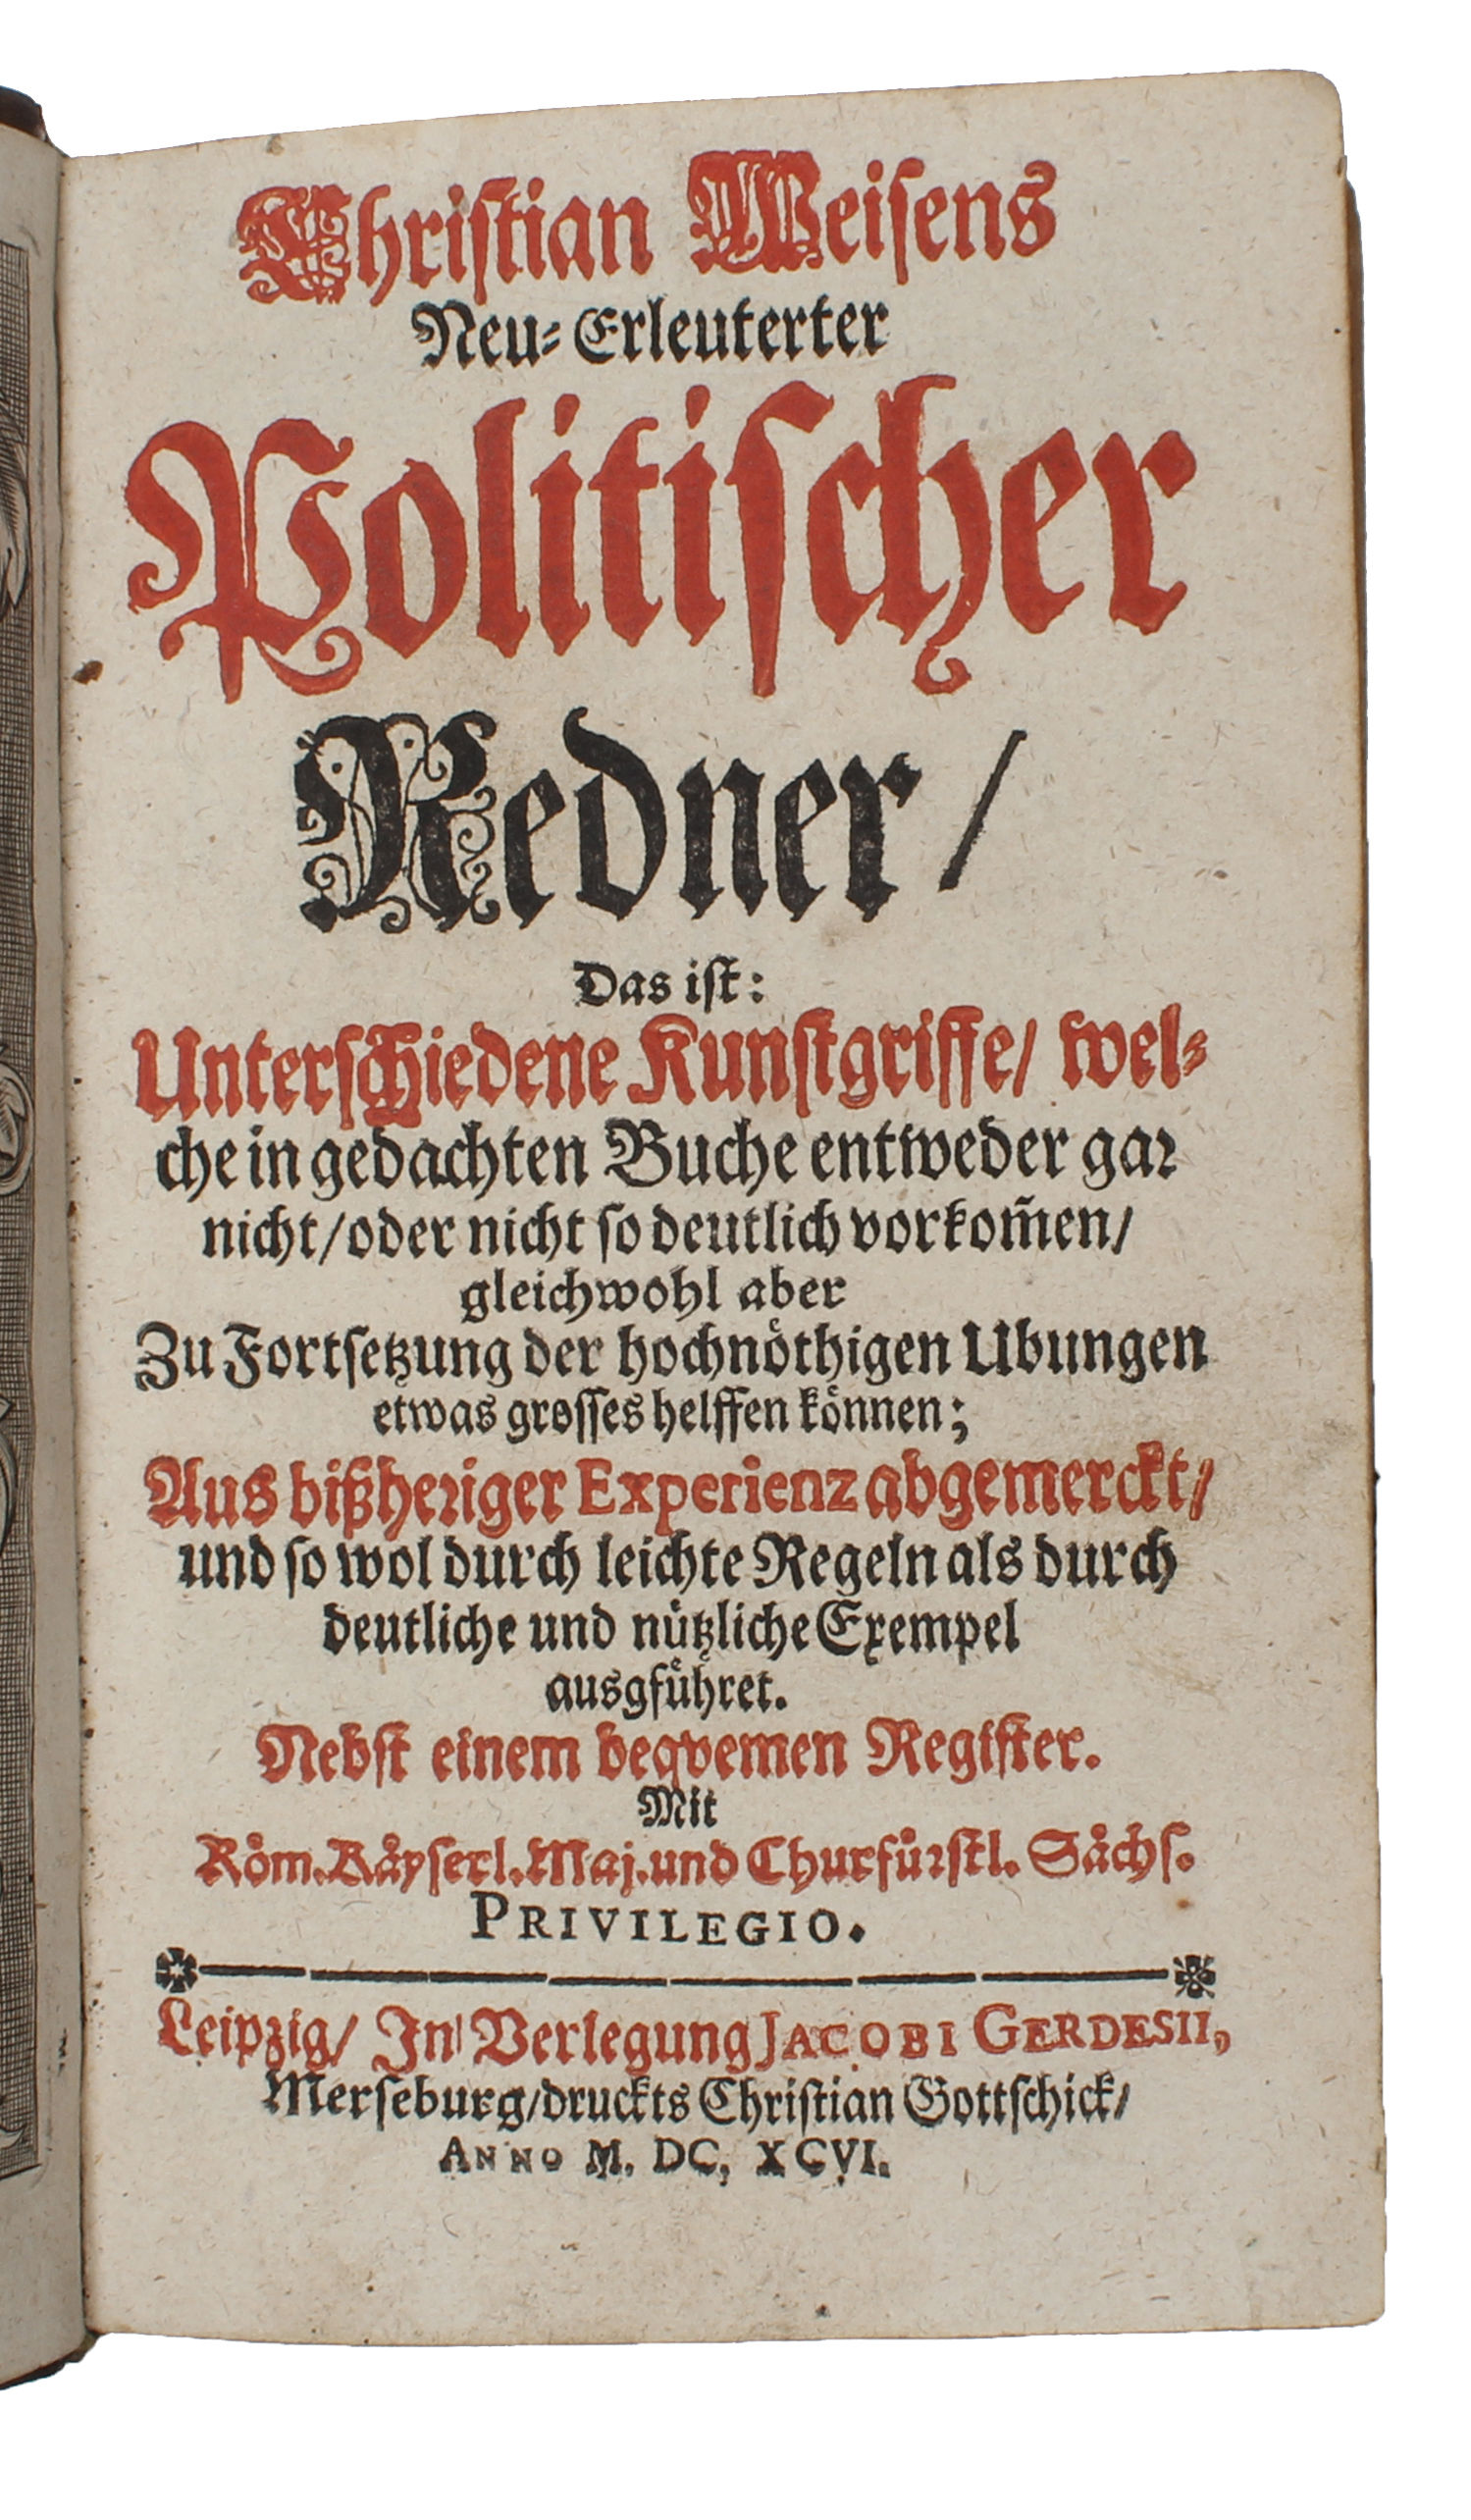 Christian Weisens
Neu-Erleuterter
Politischer
Redner/
Das ist:
Unterschiedene Kunstgriffe/ wel-
che in gedachten Buche entweder gar
nicht/oder nicht so deutlich vorkom̃en/
gleichwohl aber
Zu Fortsetzung der hochnöthigen Ubungen
etwas grosses helffen können;
Aus bißheriger Experienz abgemerckt/
und so wol durch leichte Regeln als durch
deutliche und nützliche Exempel
ausgführet.
Nebst einem beqvemen Register.
Mit
Röm. Käyserl. Maj. und Churfürstl. Sächs.
PRIVILEGIO.
Leipzig/ In Verlegung JACOBI GERDESII,
Merseburg/druckts Christian Gottschick/
ANNO M. DC, XCVI.